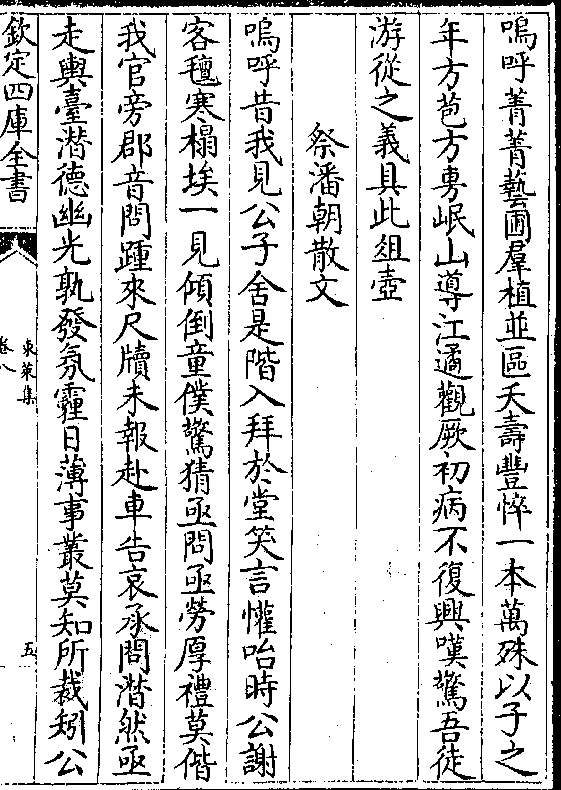 嗚呼菁菁藝圃羣植並區夭壽豐悴一本萬殊以子之
年方苞方旉岷山導江遹觀厥初病不復興嘆驚吾徒
游從之義具此俎壺
祭潘朝散文
嗚呼昔我見公子舍是階入拜於堂笑言懽咍時公謝
客氊寒榻埃一見傾倒童僕驚猜亟問亟勞厚禮莫偕
我官旁郡音問踵來尺牘未報赴車告哀承問潸然亟
走輿臺潛德幽光孰發氛霾日薄事叢莫知所裁矧公
欽定四庫全書
東萊集
卷八
五